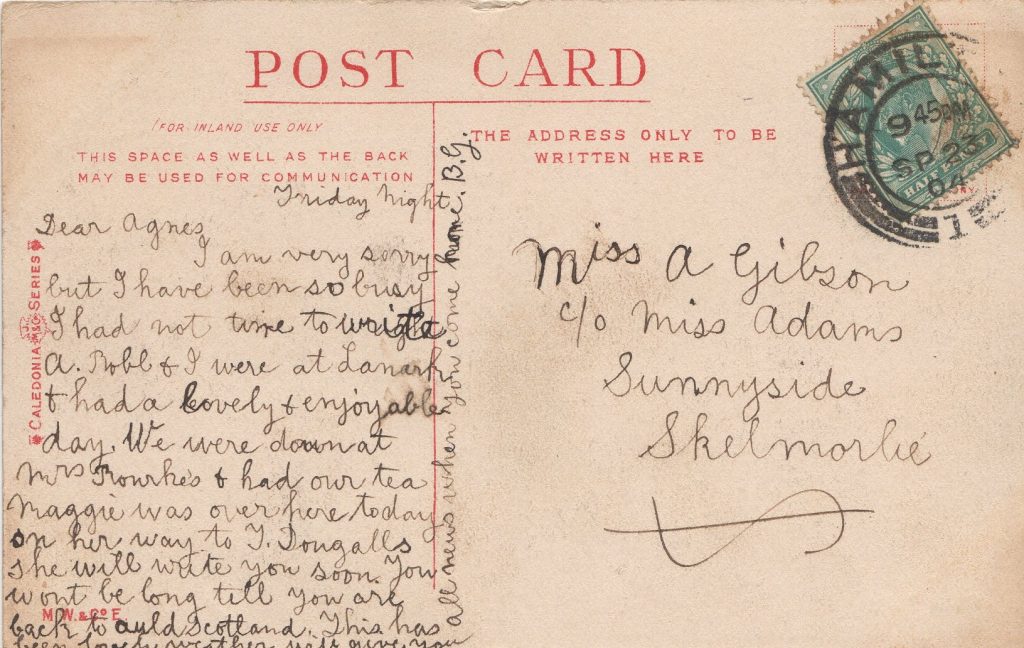 POST CARD
(FOR INLAND USE ONLY
THIS SPACE AS WELL AS THE BACK
MAY BE USED FOR COMMUNICATION
THE ADDRESS ONLY TO BE
WRITTEN HERE
HAMIL
9 45PM
SP 23
04
1
HALF PENNY
CALEDONIA M&C SERIES
M.W.& Co E.
Friday night
Dear Agnes
I am very sorry
but I have been so busy
I had not time to write
A. Robb & I were at Lanark
& had a lovely & enjoyable
day. We were down at
Mrs Rourke's & had our tea
Maggie was over here today
on her way to J. Dougalls
she will write you soon. You
wont be long till you are
back to auld Scotland. This has
been lovely weather will give you
all news when you come home. B.G.
Miss A Gibson
c/o Miss Adams
Sunnyside
Skelmorlie